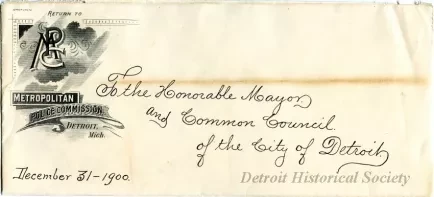 RETURN TO
METROPOLITAN
POLICE COMMISSION
DETROIT,
Mich.
To the Honorable Mayor
and Common Council
of the City of Detroit
December 31-1900.
Detroit Historical Society